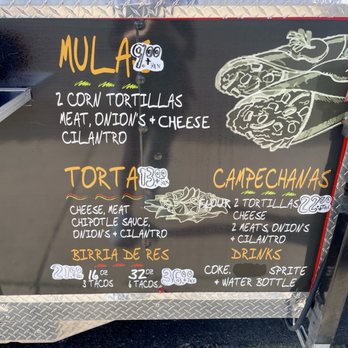 MULAS 9.00
+TAX
2 CORN TORTILLAS
MEAT, ONION'S + CHEESE
CILANTRO
TORTA 13.00
CHEESE, MEAT
CHIPOTLE SAUCE,
ONION'S + CILANTRO
CAMPECHANAS
FLOUR 2 TORTILLAS
CHEESE
2 MEAT'S ONION'S
+ CILANTRO
BIRRIA DE RES
16 OZ 32 OZ
3 TACOS 6 TACOS
DRINKS
COKE, SPRITE
+ WATER BOTTLE